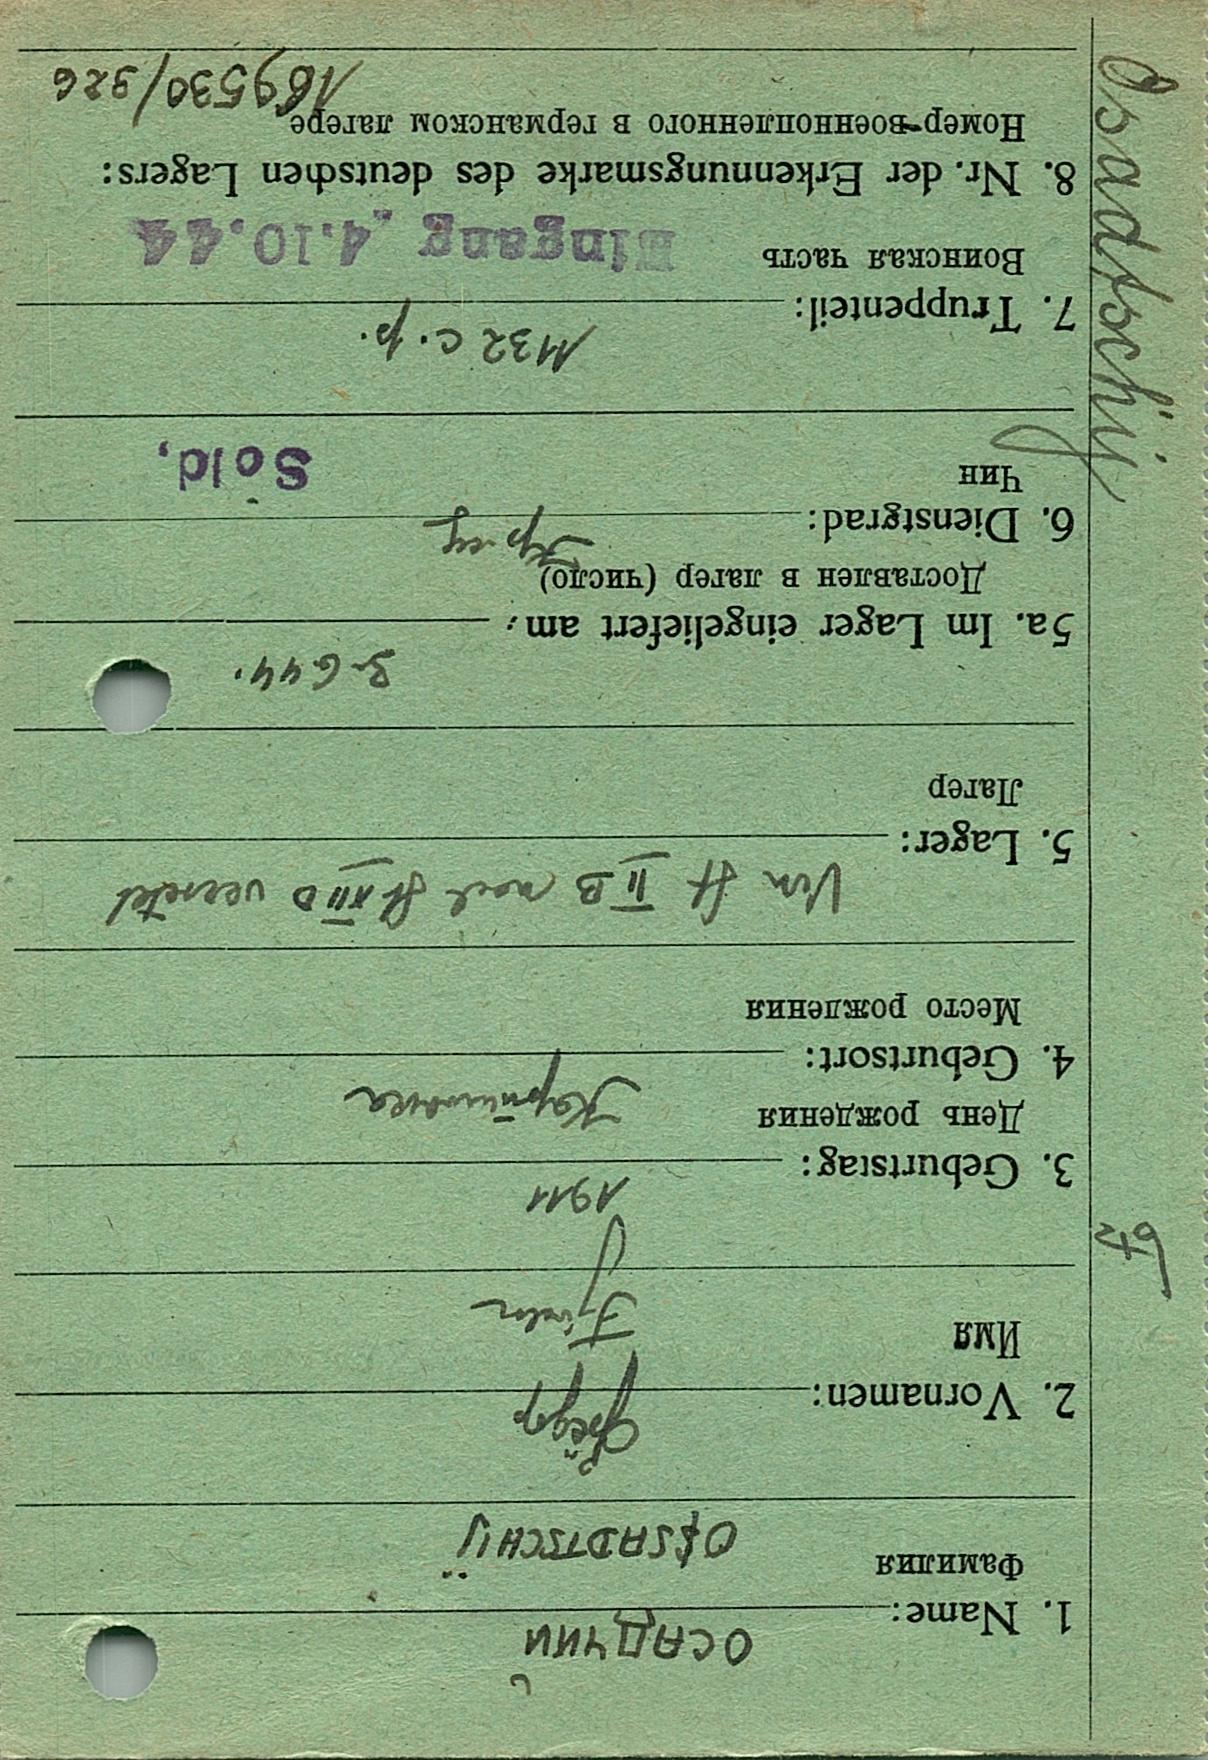 ОСАДЧИЙ
1. Name:
Фамилия
OSSADTSCHIJ
Фёдор
2. Vornamen:
Имя
Fjodor
1911
3. Geburtstag:
День рождения
4. Geburtsort:
Место рождения
Von St II B nach St XII D versetzt
5. Lager:
Лагер
3.6 44.
5a. Im Lager eingeliefert am:
Доставлен в лагер (число)
6. Dienstgrad:
Чин
Sold,
1132 с.р.
7. Truppenteil:
Воинская часть
Eingang 4.10.44
8. Nr. der Erkennungsmarke des deutschen Lagers:
Номер военнопленного в германском лагере
169530/326
Osadtschij